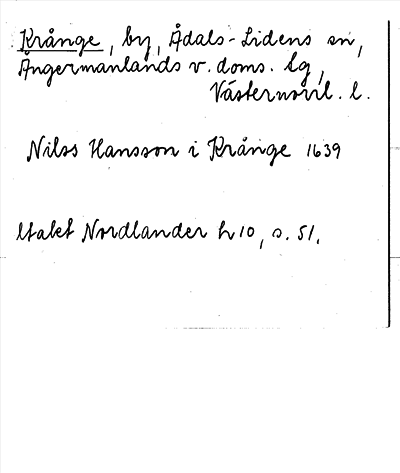 Krånge, by, Ådals-Lidens sn,
Ångermanlands v. doms. lg,
Västernorrl. l.
Nilss Hansson i Krånge 1639
Utalet Nordlander h 10, s. 51.